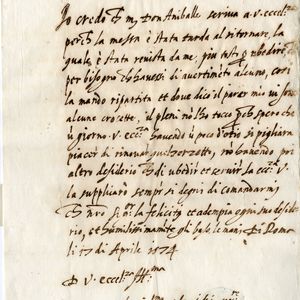 Io credo che m. Don Anibale scriva a V. eccel.za
perche la messa è stata tarda al ritornare, la
quale è stata revista da me, piu tosto p ubedire che
per bisogno che havessi di avertimẽto alcuno, così
la mando ripartita et dove dico il parer mio
alcune crocette, il pleni nõ ho tocco perche spero che
ũ giorno V. ecc.za havendo ũ poco d'otio si pigliara
piacer di rinovar quel pezzotto, nõ havendo per
altro desiderio che di ubedir et servir la ecc.a V.
la supplicarò sempre si degni di comandarmi
che nr̃o S.or la feliciti et adempia ogni suo deside
rio, et humilissimamẽte gli bascio le mani, Di Roma
li 17 di Aprile 1574
D V. eccel.za Ill.ma